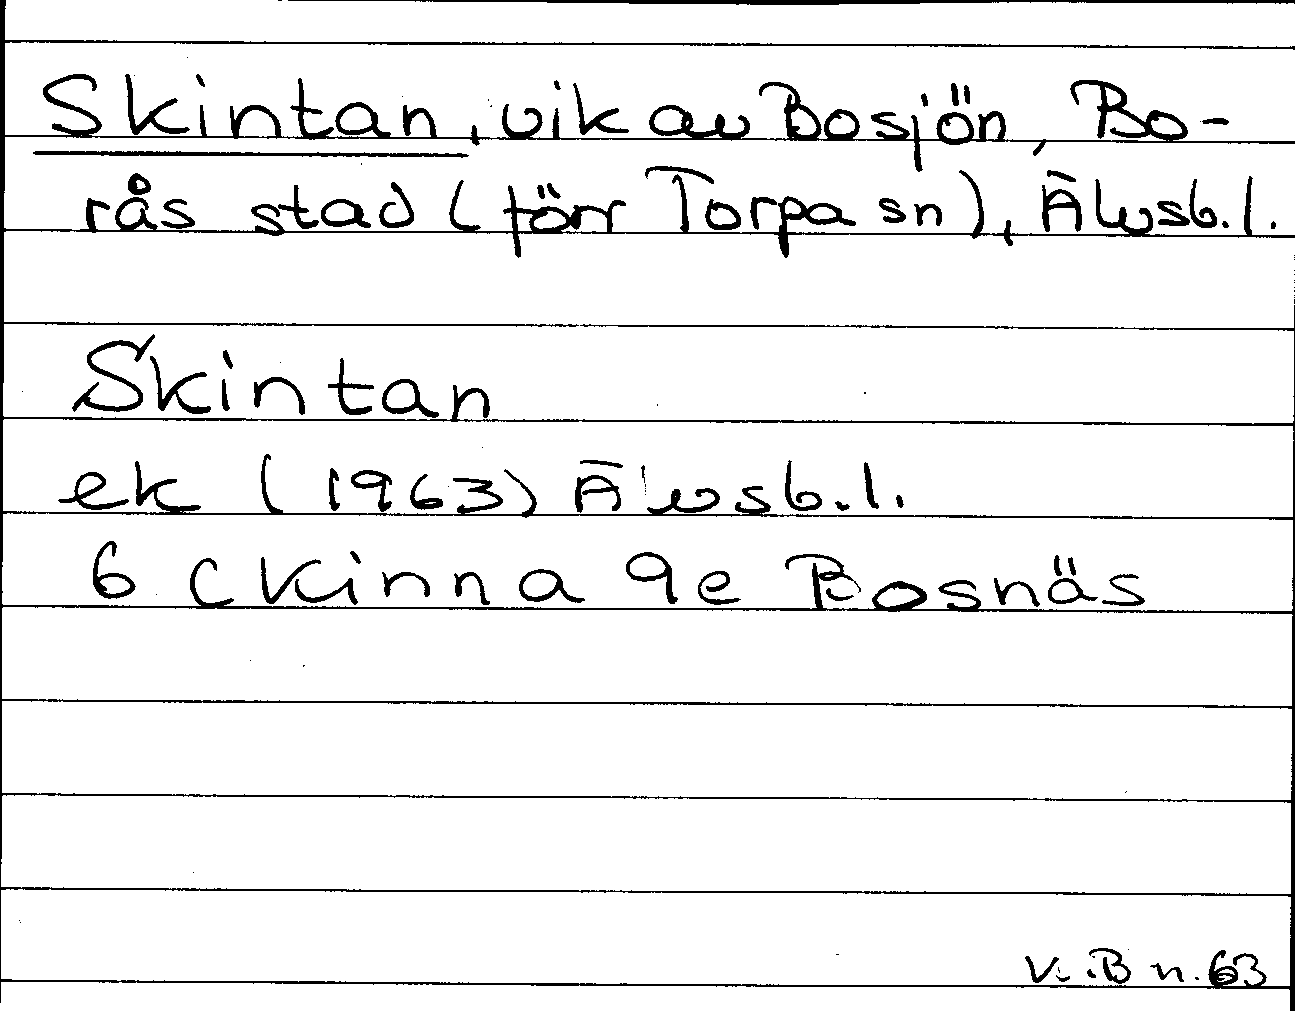 Skintan, vik av Bosjön, Bo-
rås stad (förr Torpa sn), Älvsb. l.
Skintan
ek (1963) Älvsb. l.
6 C Kinna 9e Bosnäs
B n. 63